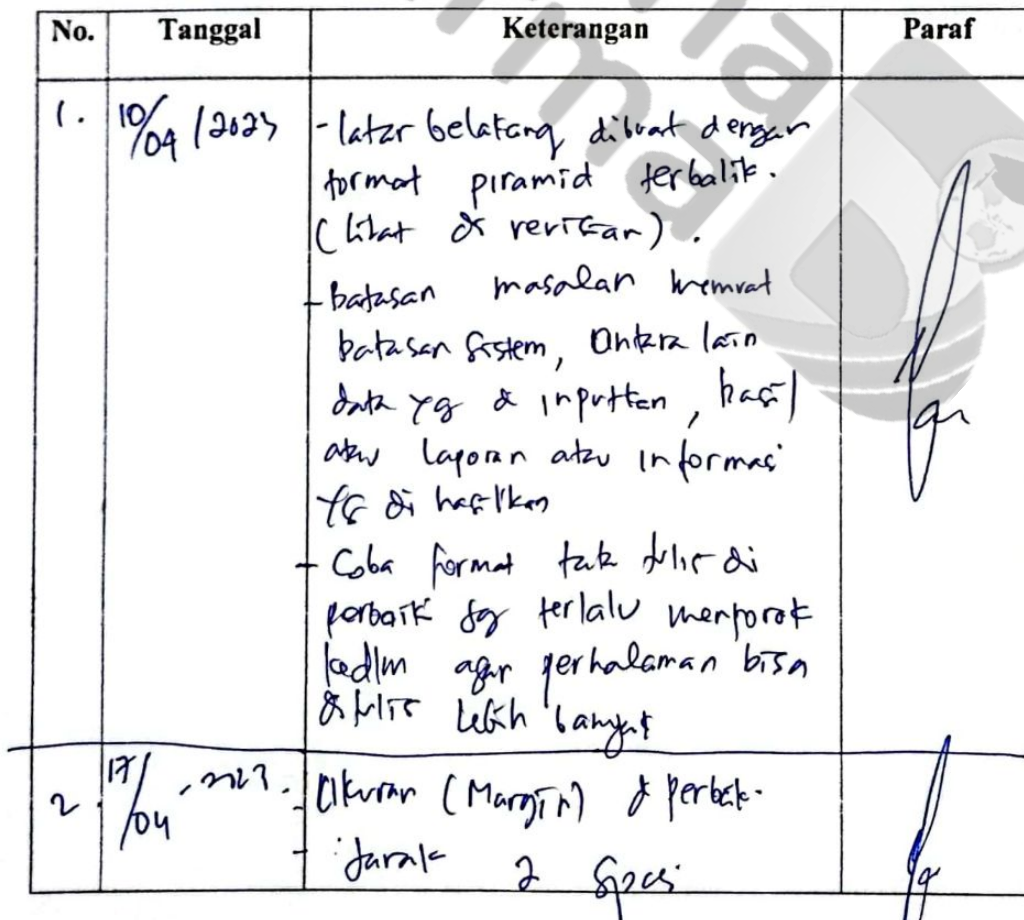 No. Tanggal Keterangan Paraf
1. 10/04/2023 - latar belakang dibuat dengan
format piramid terbalik.
(lihat di revisian).
- batasan masalah memuat
batasan sistem, antara lain
data yg di inputkan, hasil
atau laporan atau informasi
yg di hasilkan
- Coba format tata tulis di
perbaiki jg terlalu menjorok
kedlm agar perhalaman bisa
di tulis lebih banyak
2. 17/04.2023. - Ukuran (Margin) di perbaik.
- Jarak 2 spasi